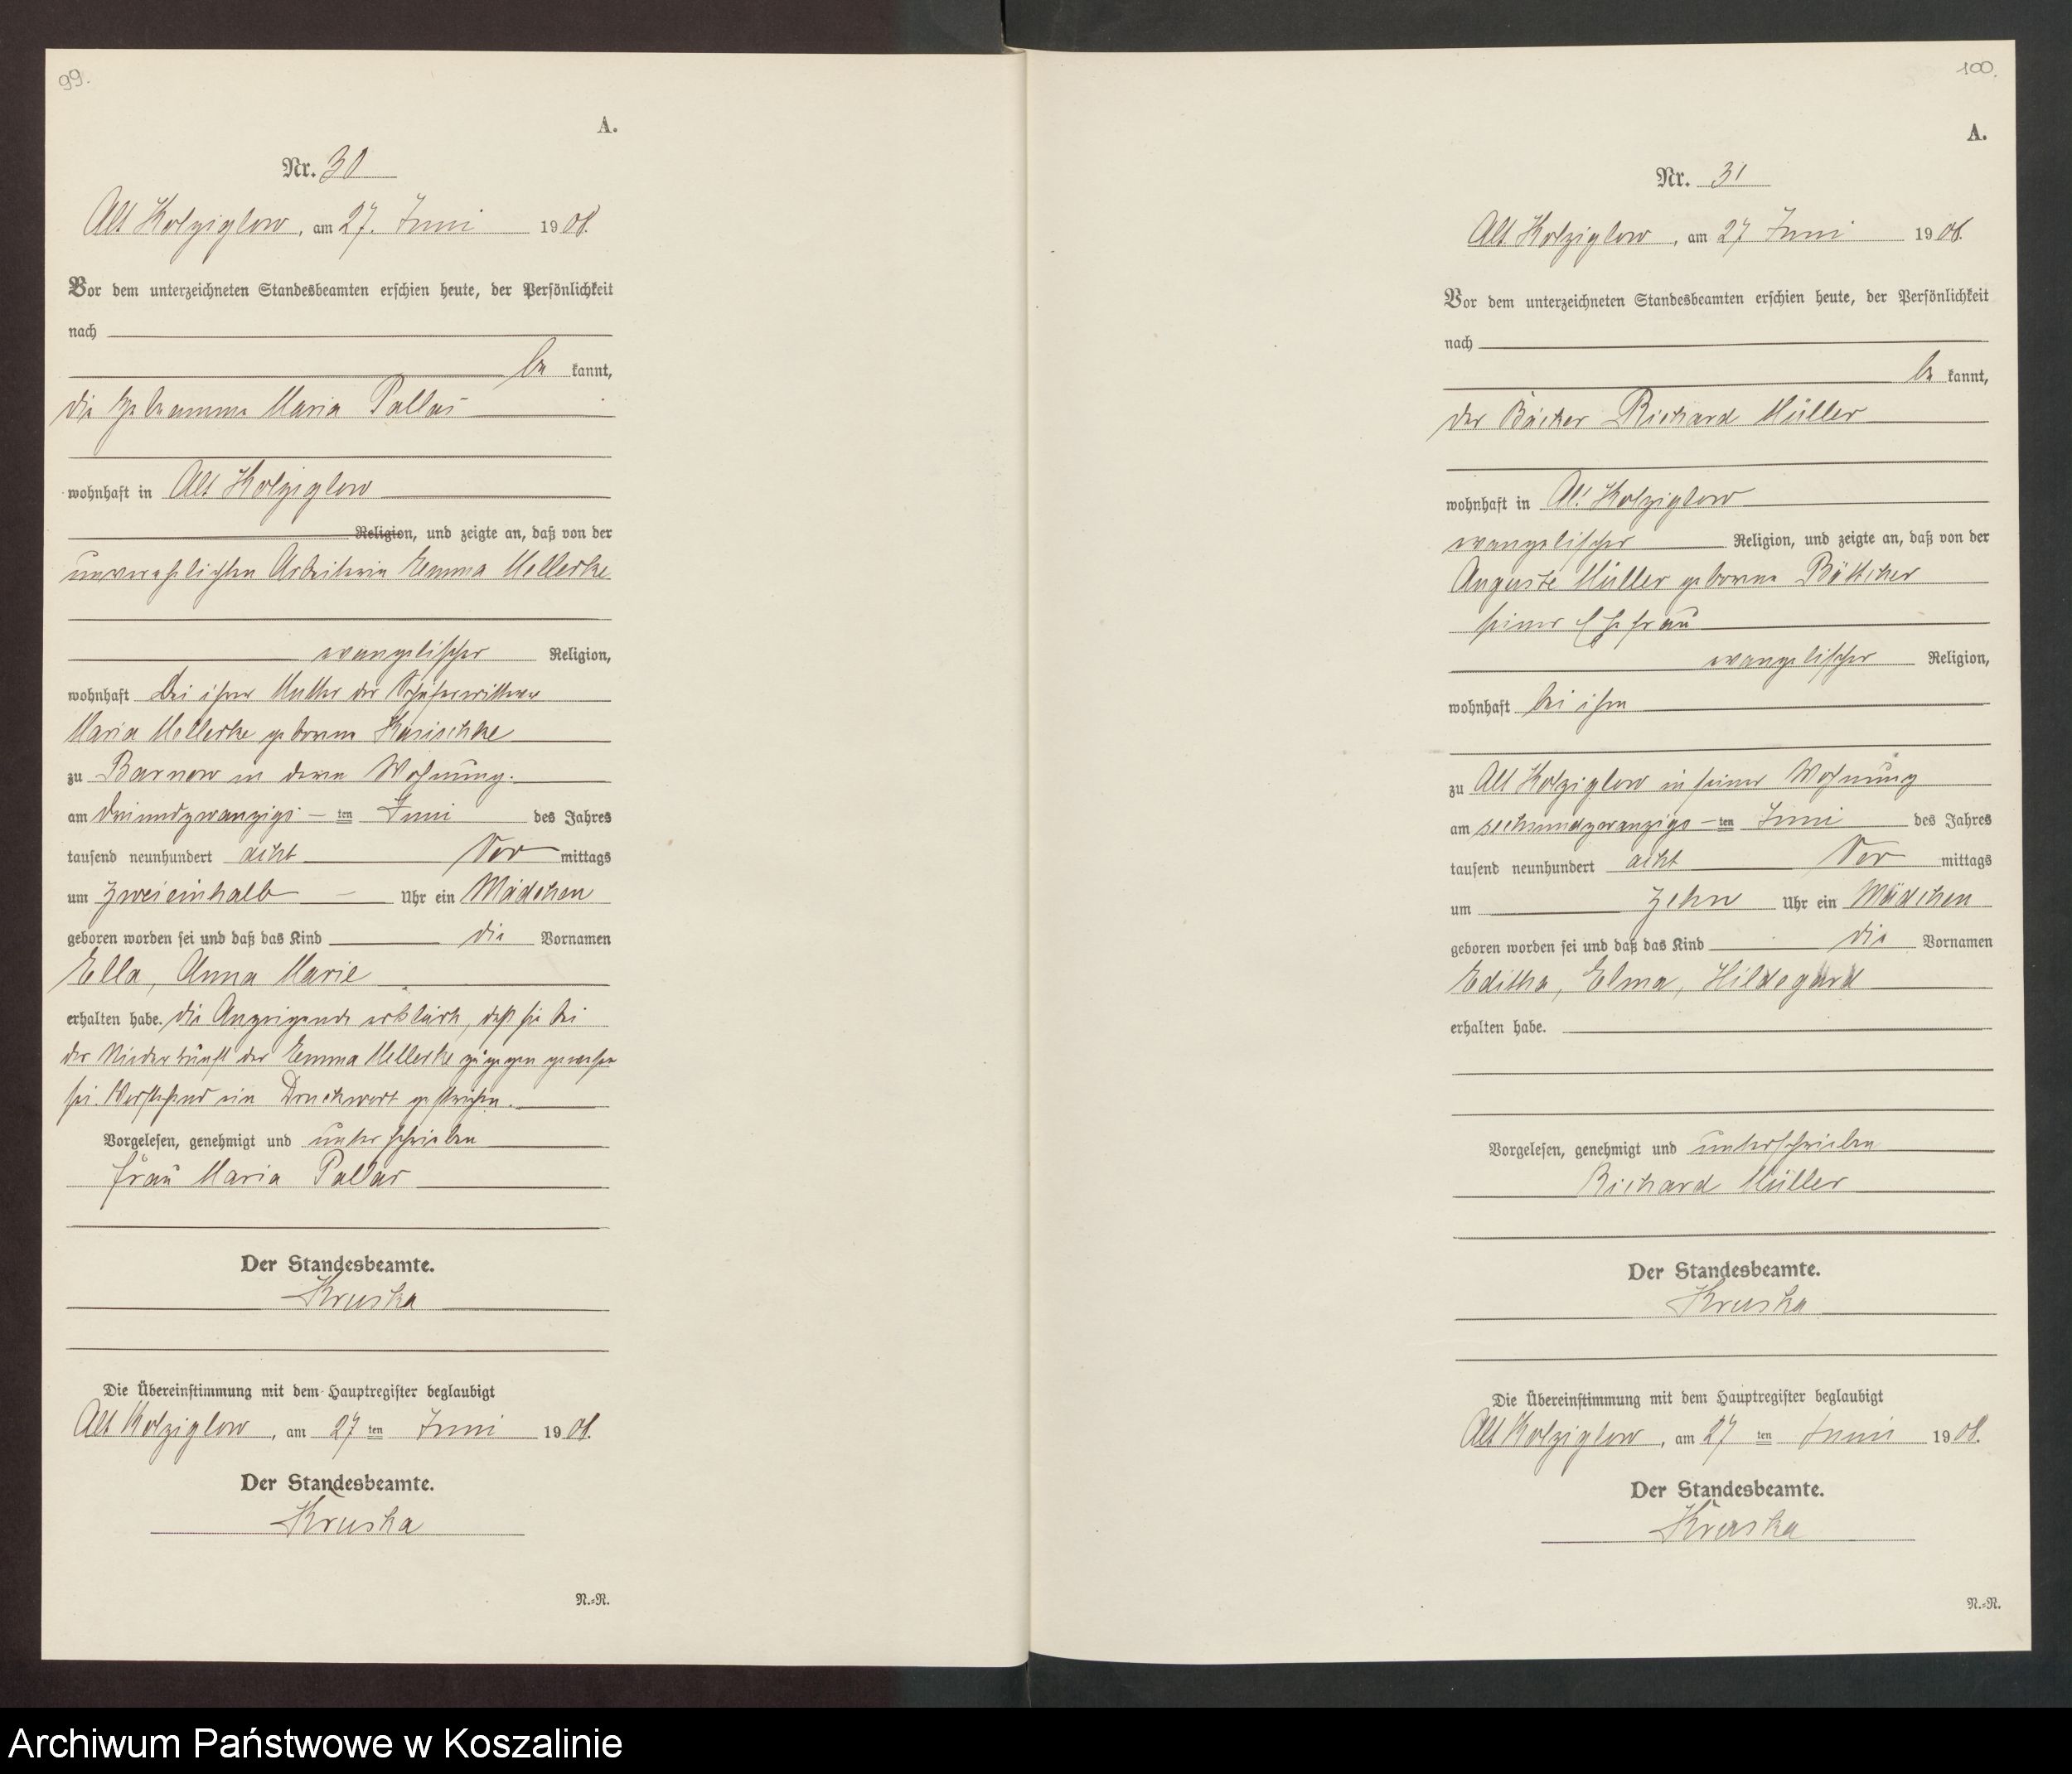 99.
A.
Nr. 30
Alt Kolziglow, am 27. Juni 1908.
Vor dem unterzeichneten Standesbeamten erschien heute, der Persönlichkeit
nach
be kannt,
die Hebamme Maria Pallas
wohnhaft in Alt Kolziglow
Religion, und zeigte an, daß von der
unverehelichten Arbeiterin Emma Mellerke
evangelischer Religion,
wohnhaft bei ihrer Mutter der Schäferwittwe
Maria Mellerke geborene
zu Barnow in deren Wohnung.
am dreiundzwanzigs-ten Juni des Jahres
tausend neunhundert acht Vor mittags
um zweieinhalb Uhr ein Mädchen
geboren worden sei und daß das Kind die Vornamen
Ella, Anna Marie
erhalten habe. Die Anzeigende erklärte, daß sie bei
der Niederkunft der Emma Mellerke zugegen gewesen
sei. Vorstehend ein Druckwort gestrichen.
Vorgelesen, genehmigt und unterschrieben
Frau Maria Pallas
Der Standesbeamte.
Kruska
Die Übereinstimmung mit dem Hauptregister beglaubigt
Alt Kolziglow, am 27 ten Juni 1908.
Der Standesbeamte.
Kruska
N.=R.
100.
A.
Nr. 31
Alt Kolziglow, am 27 Juni 1908.
Vor dem unterzeichneten Standesbeamten erschien heute, der Persönlichkeit
nach
be kannt,
der Bäcker Richard Müller
wohnhaft in Alt Kolziglow
evangelischer Religion, und zeigte an, daß von der
Auguste Müller geborene Böttcher
seiner Ehefrau
evangelischer Religion,
wohnhaft bei ihm
zu Alt Kolziglow in seiner Wohnung
am sechsundzwanzigs-ten Juni des Jahres
tausend neunhundert acht Vor mittags
um zehn Uhr ein Mädchen
geboren worden sei und daß das Kind die Vornamen
Editha, Elma, Hildegard
erhalten habe.
Vorgelesen, genehmigt und unterschrieben
Richard Müller
Der Standesbeamte.
Kruska
Die Übereinstimmung mit dem Hauptregister beglaubigt
Alt Kolziglow, am 27 ten Juni 1908.
Der Standesbeamte.
Kruska
N.=R.
Archiwum Państwowe w Koszalinie